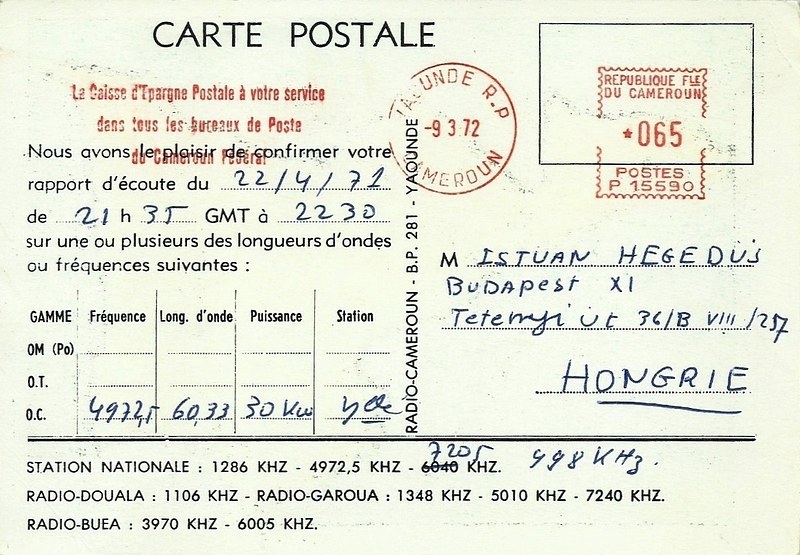 CARTE POSTALE
La Caisse d'Epargne Postale à votre service
dans tous les bureaux de Poste
du Cameroun Fédéral
YAOUNDE R.P
-9 3 72
CAMEROUN
REPUBLIQUE FLE
DU CAMEROUN
*065
POSTES
P 15590
Nous avons le plaisir de confirmer votre
rapport d'écoute du 22/4/71
de 21 h 35 GMT à 2230
sur une ou plusieurs des longueurs d'ondes
ou fréquences suivantes :
GAMME Fréquence Long. d'onde Puissance Station
OM (Po)
O.T.
O.C. 4972,5 60,33 30 Kw Yde
RADIO-CAMEROUN - B.P. 281 - YAOUNDE
M ISTUAN HEGEDUS
BUDAPEST XI
Tetenyi Út 36/B VIII/257
HONGRIE
7205
STATION NATIONALE : 1286 KHZ - 4972,5 KHZ - 6040 KHZ. 998 KHz.
RADIO-DOUALA : 1106 KHZ - RADIO-GAROUA : 1348 KHZ - 5010 KHZ - 7240 KHZ.
RADIO-BUEA : 3970 KHZ - 6005 KHZ.